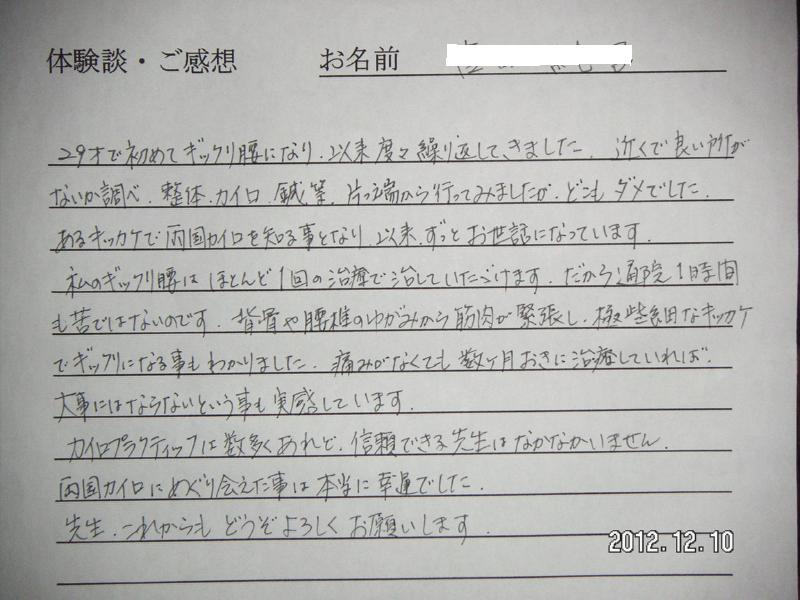 体験談・ご感想 お名前
29才で初めてギックリ腰になり、以来度々繰り返してきました。近くで良い所が
ないか調べ、整体、カイロ、鍼等、片っ端から行ってみましたが、どこもダメでした。
あるキッカケで両国カイロを知る事となり、以来、ずっとお世話になっています。
私のギックリ腰はほとんど1回の治療で治していただけます。だから通院1時間
も苦ではないのです。背骨や腰椎のゆがみから筋肉が緊張し、極些細なキッカケ
でギックリになる事もわかりました。痛みがなくても数ヶ月おきに治療していれば、
大事にはならないという事も実感しています。
カイロプラクティックは数多くあれど、信頼できる先生はなかなかいません。
両国カイロにめぐり会えた事は本当に幸運でした。
先生、これからもどうぞよろしくお願いします。
2012.12.10